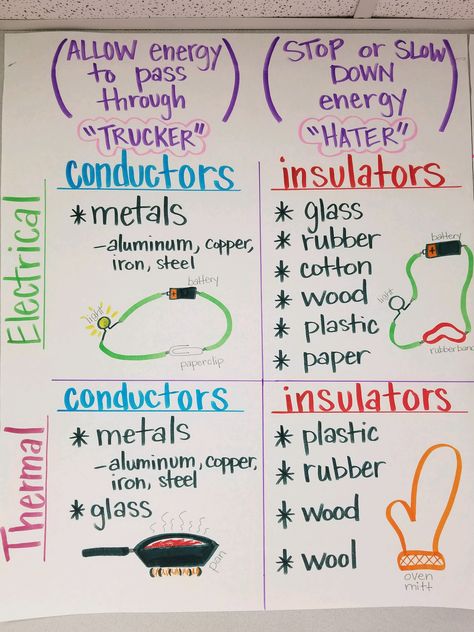 (ALLOW energy
to pass
through)
"TRUCKER"
(STOP or SLOW
DOWN
energy)
"HATER"
Electrical
conductors
* metals
- aluminum, copper,
iron, steel
battery
light
paperclip
insulators
* glass
* rubber
* cotton
* wood
* plastic
* paper
battery
light
rubberband
Thermal
conductors
* metals
- aluminum, copper,
iron, steel
* glass
pan
insulators
* plastic
* rubber
* wood
* wool
oven
mitt